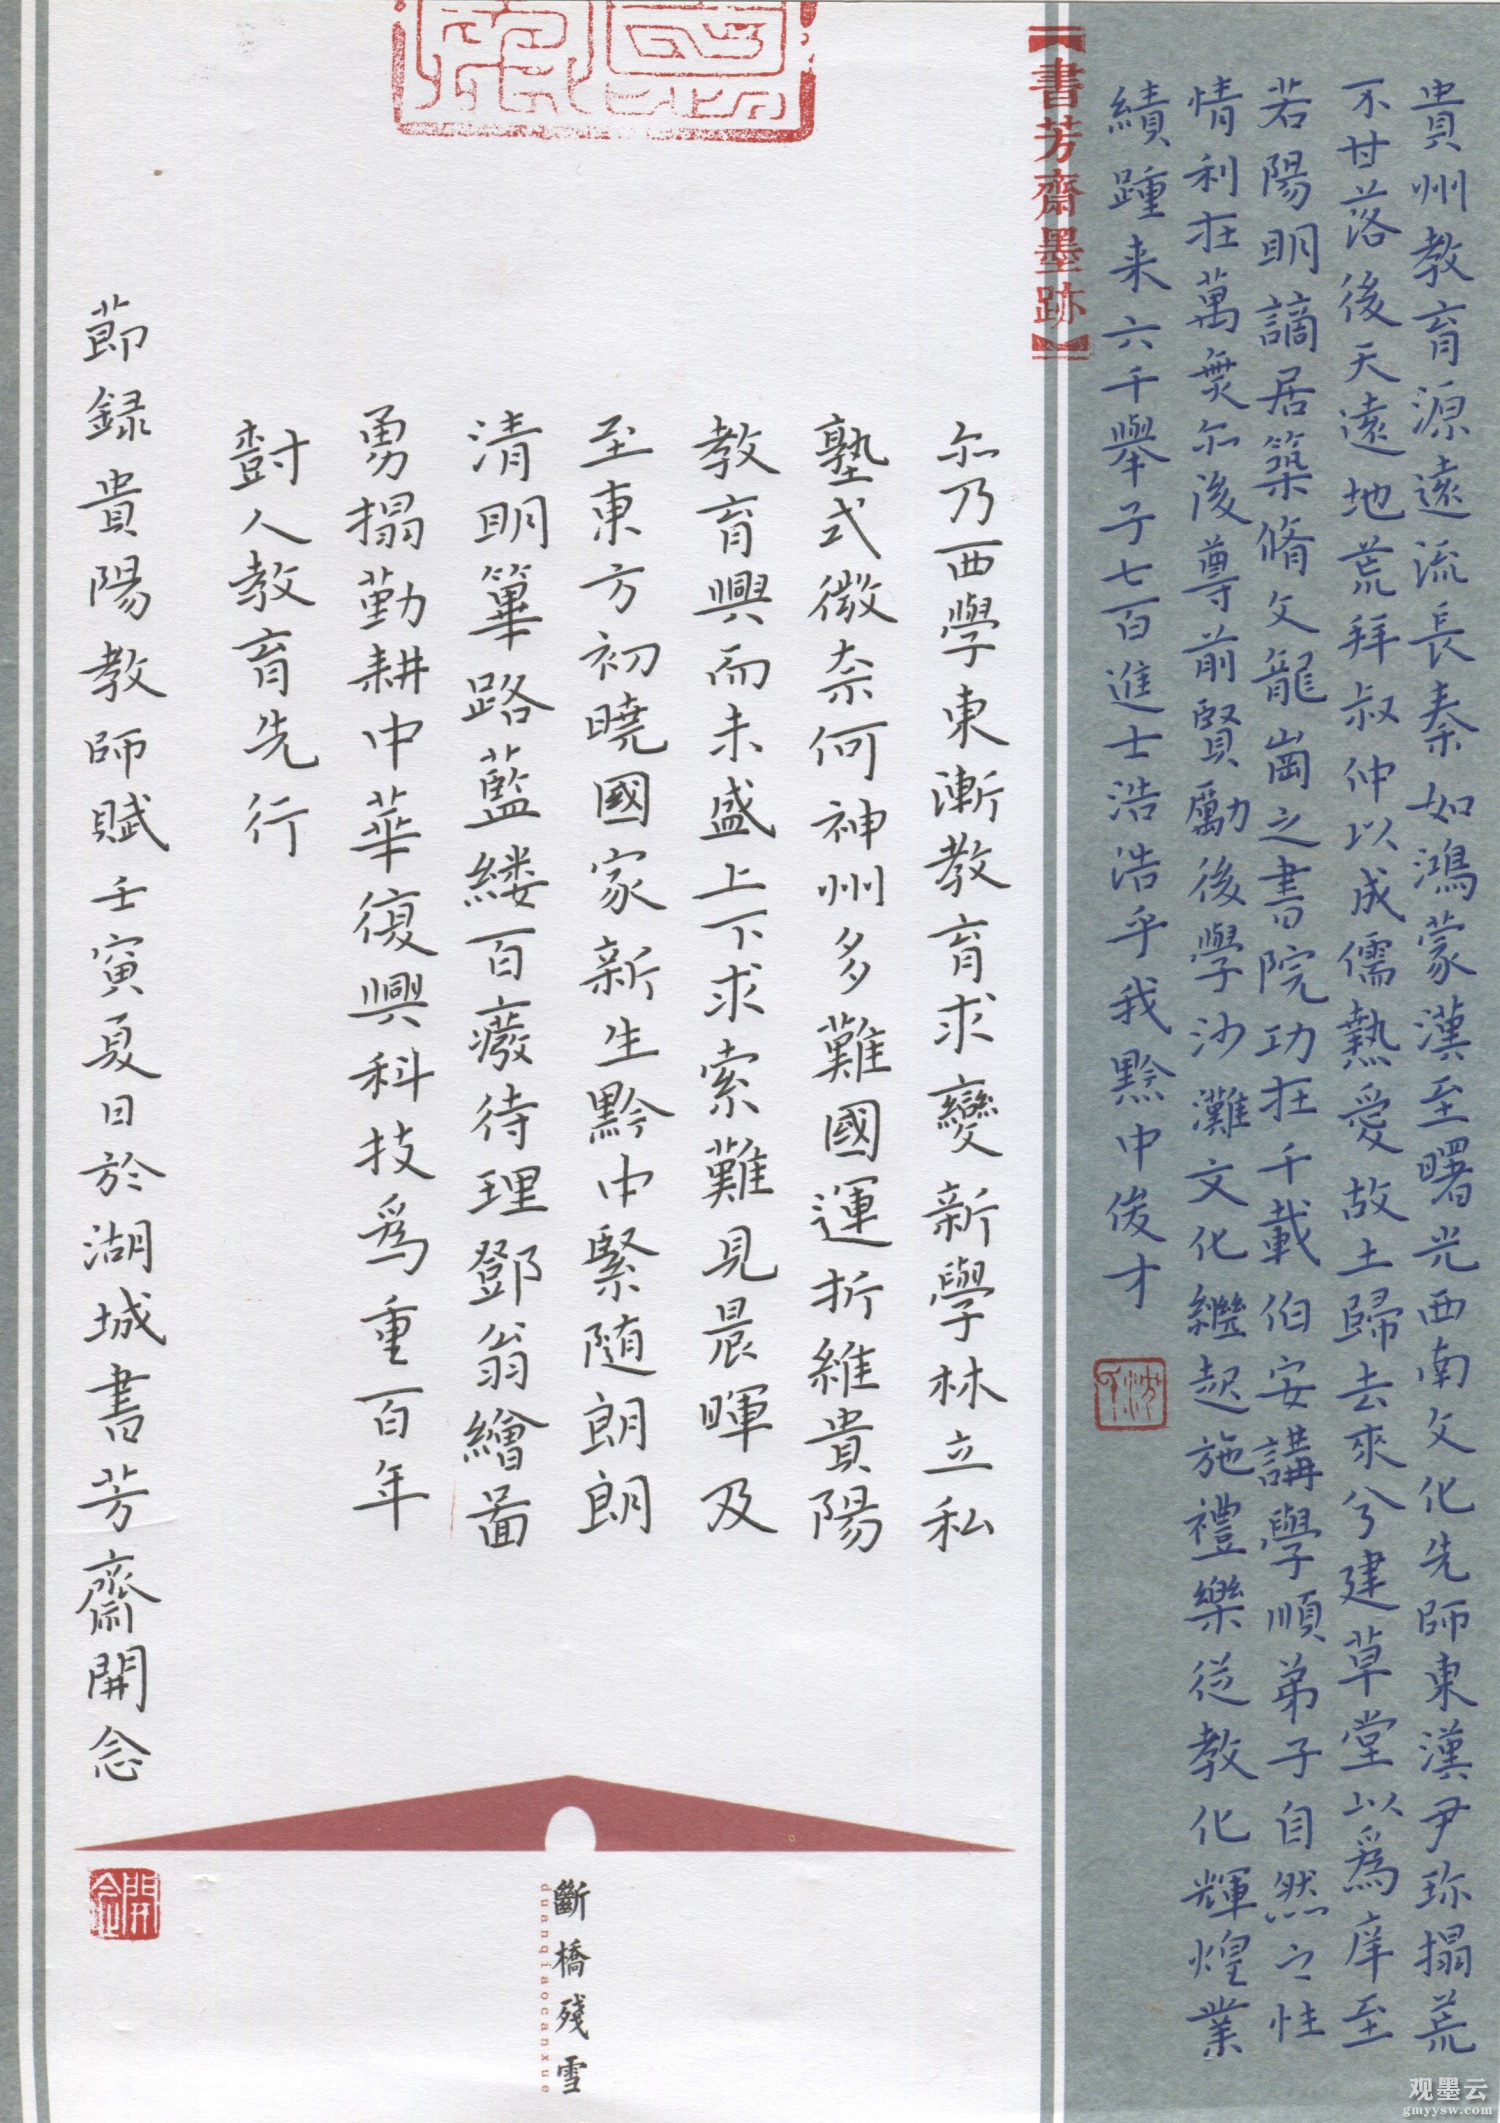 貴州教育源遠流長秦如鴻蒙漢至曙光西南文化先師東漢尹珎搨荒
不甘落後天遠地荒拜叔仲以成儒熱愛故土歸去來兮建草堂以爲庠至
若陽明謫居築脩文龍崗之書院功在千載伯安講學順弟子自然之性
情利在萬無尒後尊前賢勵後學沙灘文化繼起施禮樂从教化輝煌業
績踵来六千舉子七百進士浩浩乎我黔中俊才
【書芳齋墨跡】
尒乃西學東漸教育求變新學林立私
塾式微奈何神州多難國運折維貴陽
教育興而未盛上下求索難見晨暉及
至東方初曉國家新生黔中緊随朗朗
清明篳路藍縷百廢待理鄧翁繪啚
勇搨勤耕中華復興科技爲重百年
對人教育先行
莭録貴陽教師賦壬寅夏日於湖城書芳齋開念
開念
斷橋殘雪
duanqiaocanxue
观墨云
gmyysw.com